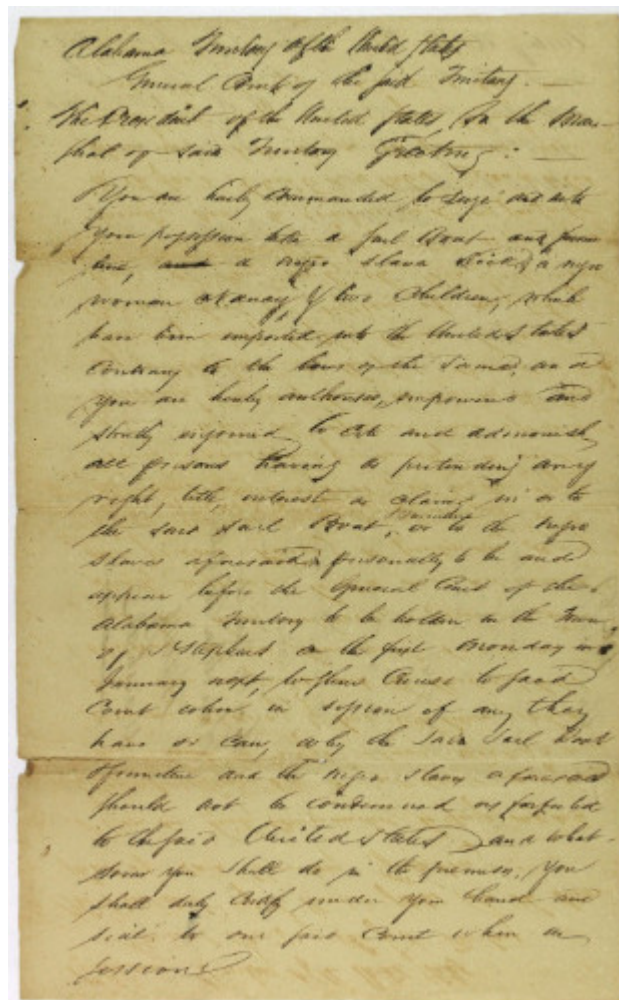 Alabama Territory of the United States
General Court of the said Territory. —
The President of the United States, To the Mar-
shal of said Territory Greeting: —
You are hereby commanded to seize and into
your possession take a Sail Boat and furni
ture, a negro slave Dick, a negro
woman & two Children, which
have been imported into the United States
contrary to the laws of the same, and
you are hereby authorised, empowered and
strictly enjoined to cite and admonish
all persons having or pretending any
right, title, interest or claim in or to
the said Sail Boat, & furniture or to the negro
slaves aforesaid personally to be and
appear before the General Court of the
Alabama Territory to be holden in the Town
of St Stephens on the first Monday in
January next, to shew Cause to said
Court when in session if any they
have or can, why the said Sail Boat
& furniture and the negro slaves aforesaid
should not be condemned as forfeited
to the said United States, and what-
soever you shall do in the premises, you
shall duly certify under your hand and
seal to our said Court when in
session